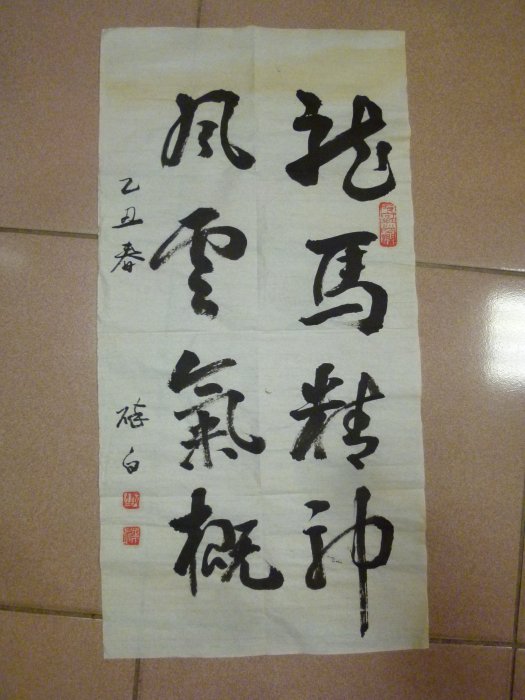 龍馬精神
風雲氣概
乙丑春
白